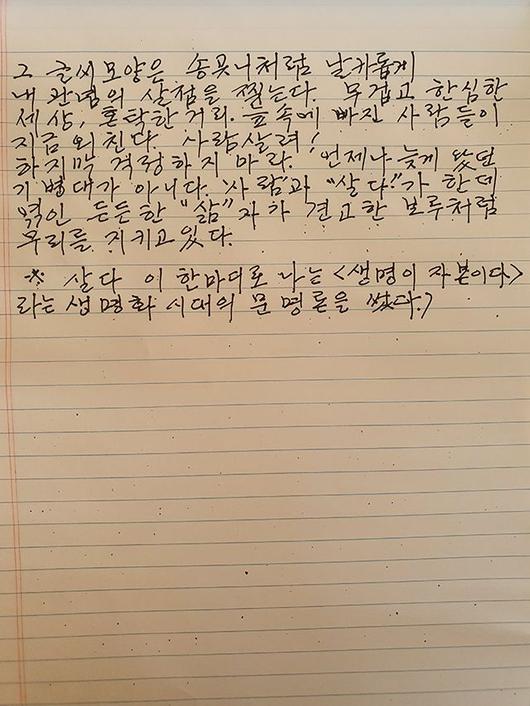 그 글씨모양은 송곳니처럼 날카롭게
내 관념의 살점을 찢는다. 무겁고 한심한
세상, 혼탁한 거리. 늪속에 빠진 사람들이
지금 외친다. 사람살려!
하지막 걱정하지 마라. 언제나 늦게 왔던
기병대가 아니다. '사람'과 "살다."가 한데
묶인 든든한 "삶"자가 견고한 보루처럼
우리를 지키고있다.
※ 살다 이 한마디로 나는 <생명이 자본이다>
라는 생명화 시대의 문명론을 썼다.)